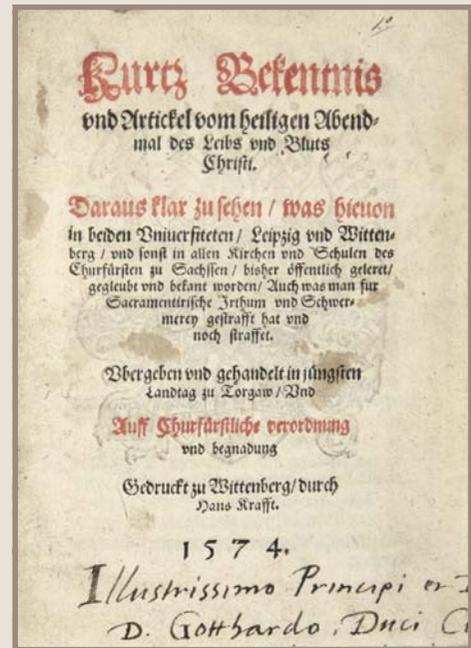 Kurtz Bekentnis
vnd Artickel vom heiligen Abend-
mal des Leibs vnd Bluts
Christi.
Daraus klar zu sehen / was hieuon
in beiden Vniuersiteten / Leipzig vnd Witten-
berg / vnd sonst in allen Kirchen vnd Schulen des
Churfürsten zu Sachssen / bisher öffentlich geleret /
gegleubt vnd bekant worden / Auch was man fur
Sacramentirische Irthum vnd Schwer-
merey gestrafft hat vnd
noch straffet.
Vbergeben vnd gehandelt in jüngsten
Landtag zu Torgaw / Vnd
Auff Churfürstliche verordnung
vnd begnadung
Gedruckt zu Wittenberg / durch
Hans Krafft.
1574.
Illustrissimo Principi
D. Gotthardo, Duci